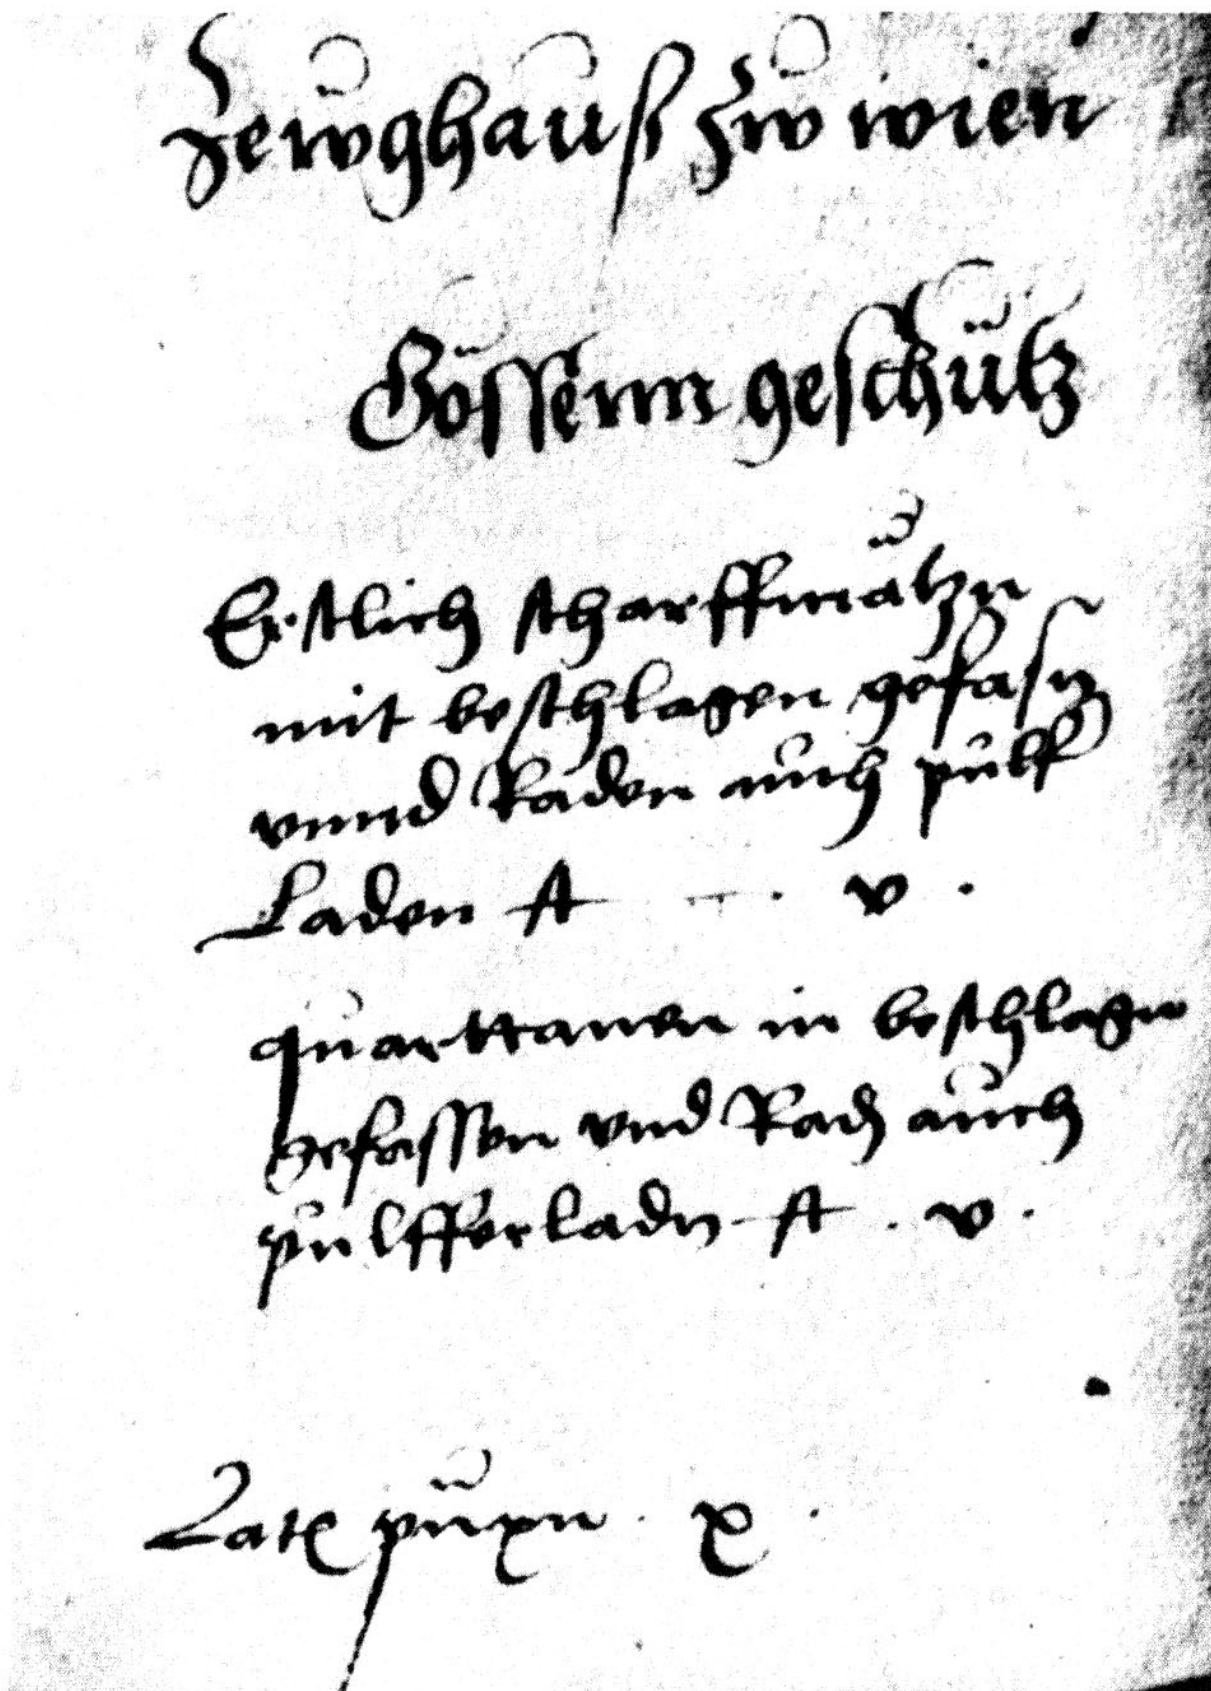 Zewghauß zw wien
Gössenn geschütz
Erstlich scharffmätzn
mit beschlagen gefasn
vnnd Räden auch pulf
Laden st v .
quarttanen in beschlagn
gefässen vnd Radn auch
pulfferladn st . v .
Lat{us} püxn . x .